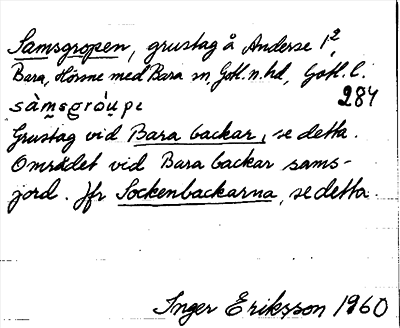 Samsgropen, grustag å Anderse 1²,
Bara, Hörsne med Bara sn, Gotl. n. hd, Gotl. l.
sàmsgróupe 284
Grustag vid Bara backar, se detta.
Området vid Bara backar sams-
jord. Jfr Sockenbackarna, se detta.
Inger Eriksson 1960